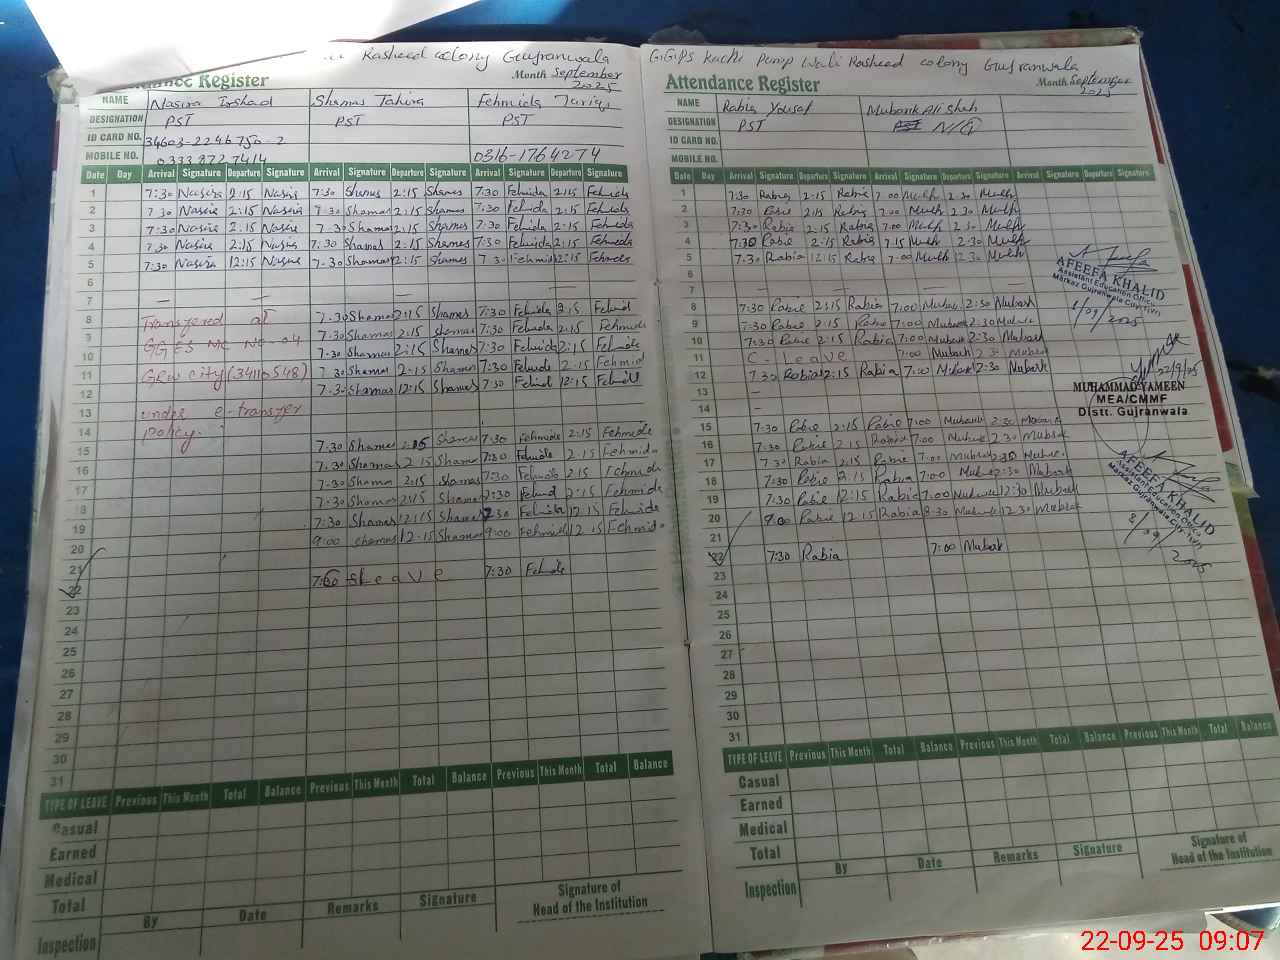 Rasheed colony Gujranwala
Attendance Register
Month September
2025
NAME Nasira Irshad Shamas Tahira Fehmida Tariq
DESIGNATION PST PST PST
ID CARD NO. 34603-2246750-2
MOBILE NO. 0333 8727414 0316-1764274
Date Day Arrival Signature Departure Signature Arrival Signature Departure Signature Arrival Signature Departure Signature
1 7:30 Nasira 2:15 Nasira 7:30 Shamas 2:15 Shamas 7:30 Fehmida 2:15 Fehmida
2 7:30 Nasira 2:15 Nasira 7:30 Shamas 2:15 Shamas 7:30 Fehmida 2:15 Fehmida
3 7:30 Nasira 2:15 Nasira 7:30 Shamas 2:15 Shamas 7:30 Fehmida 2:15 Fehmida
4 7:30 Nasira 2:15 Nasira 7:30 Shamas 2:15 Shamas 7:30 Fehmida 2:15 Fehmida
5 7:30 Nasira 12:15 Nasira 7:30 Shamas 12:15 Shamas 7:30 Fehmida 12:15 Fehmida
6
7
8 Transfered at 7:30 Shamas 2:15 Shamas 7:30 Fehmida 2:15 Fehmida
9 GGES MC NO-04 7:30 Shamas 2:15 Shamas 7:30 Fehmida 2:15 Fehmida
10 7:30 Shamas 2:15 Shamas 7:30 Fehmida 2:15 Fehmida
11 GRW city (34110548) 7:30 Shamas 2:15 Shamas 7:30 Fehmida 2:15 Fehmida
12 7:30 Shamas 12:15 Shamas 7:30 Fehmida 12:15 Fehmida
13 under e-transfer
14 policy.
15 7:30 Shamas 2:15 Shamas 7:30 Fehmida 2:15 Fehmida
16 7:30 Shamas 2:15 Shamas 7:30 Fehmida 2:15 Fehmida
17 7:30 Shamas 2:15 Shamas 7:30 Fehmida 2:15 Fehmida
18 7:30 Shamas 2:15 Shamas 7:30 Fehmida 2:15 Fehmida
19 7:30 Shamas 12:15 Shamas 7:30 Fehmida 12:15 Fehmida
20 9:00 Shamas 12:15 Shamas 9:00 Fehmida 12:15 Fehmida
21
22 7:30 Leave 7:30 Fehmida
23
24
25
26
27
28
29
30
31
TYPE OF LEAVE Previous This Month Total Balance Previous This Month Total Balance Previous This Month Total Balance
Casual
Earned
Medical
Total
Inspection By Date Remarks Signature Signature of
Head of the Institution
GGPS Kachi Pump Wali Rasheed colony Gujranwala
Attendance Register
Month September
2025
NAME Rabia Yousaf Mubarik Ali Shah
DESIGNATION PST N/Q
ID CARD NO.
MOBILE NO.
Date Day Arrival Signature Departure Signature Arrival Signature Departure Signature Arrival Signature Departure Signature
1 7:30 Rabia 2:15 Rabia 7:00 Mubk 2:30 Mubk
2 7:30 Rabia 2:15 Rabia 7:00 Mubk 2:30 Mubk
3 7:30 Rabia 2:15 Rabia 7:00 Mubk 2:30 Mubk
4 7:30 Rabia 2:15 Rabia 7:15 Mubk 2:30 Mubk
5 7:30 Rabia 12:15 Rabia 7:00 Mubk 12:30 Mubk
6
7
8 7:30 Rabia 2:15 Rabia 7:00 Mubarak 2:30 Mubarak
9 7:30 Rabia 2:15 Rabia 7:00 Mubarak 2:30 Mubarak
10 7:30 Rabia 2:15 Rabia 7:00 Mubarak 2:30 Mubarak
11 C - Leave 7:00 Mubarak 2:30 Mubarak
12 7:30 Rabia 12:15 Rabia 7:00 Mubarak 12:30 Mubarak
13
14
15 7:30 Rabia 2:15 Rabia 7:00 Mubarak 2:30 Mubarak
16 7:30 Rabia 2:15 Rabia 7:00 Mubarak 2:30 Mubarak
17 7:30 Rabia 2:15 Rabia 7:00 Mubarak 2:30 Mubarak
18 7:30 Rabia 2:15 Rabia 7:00 Mubarak 2:30 Mubarak
19 7:30 Rabia 12:15 Rabia 7:00 Mubarak 12:30 Mubarak
20 9:00 Rabia 12:15 Rabia 8:30 Mubarak 12:30 Mubarak
21
22 7:30 Rabia 7:00 Mubarak
23
24
25
26
27
28
29
30
31
AFEEFA KHALID
Assistant Education Officer
Markaz Gujranwala City
1/09/2025
22/9/25
MUHAMMAD YAMEEN
MEA/CMMF
Distt. Gujranwala
AFEEFA KHALID
Assistant Education Officer
Markaz Gujranwala City
8/09/2025
TYPE OF LEAVE Previous This Month Total Balance Previous This Month Total Balance Previous This Month Total Balance
Casual
Earned
Medical
Total
Inspection By Date Remarks Signature Signature of
Head of the Institution
22-09-25 09:07